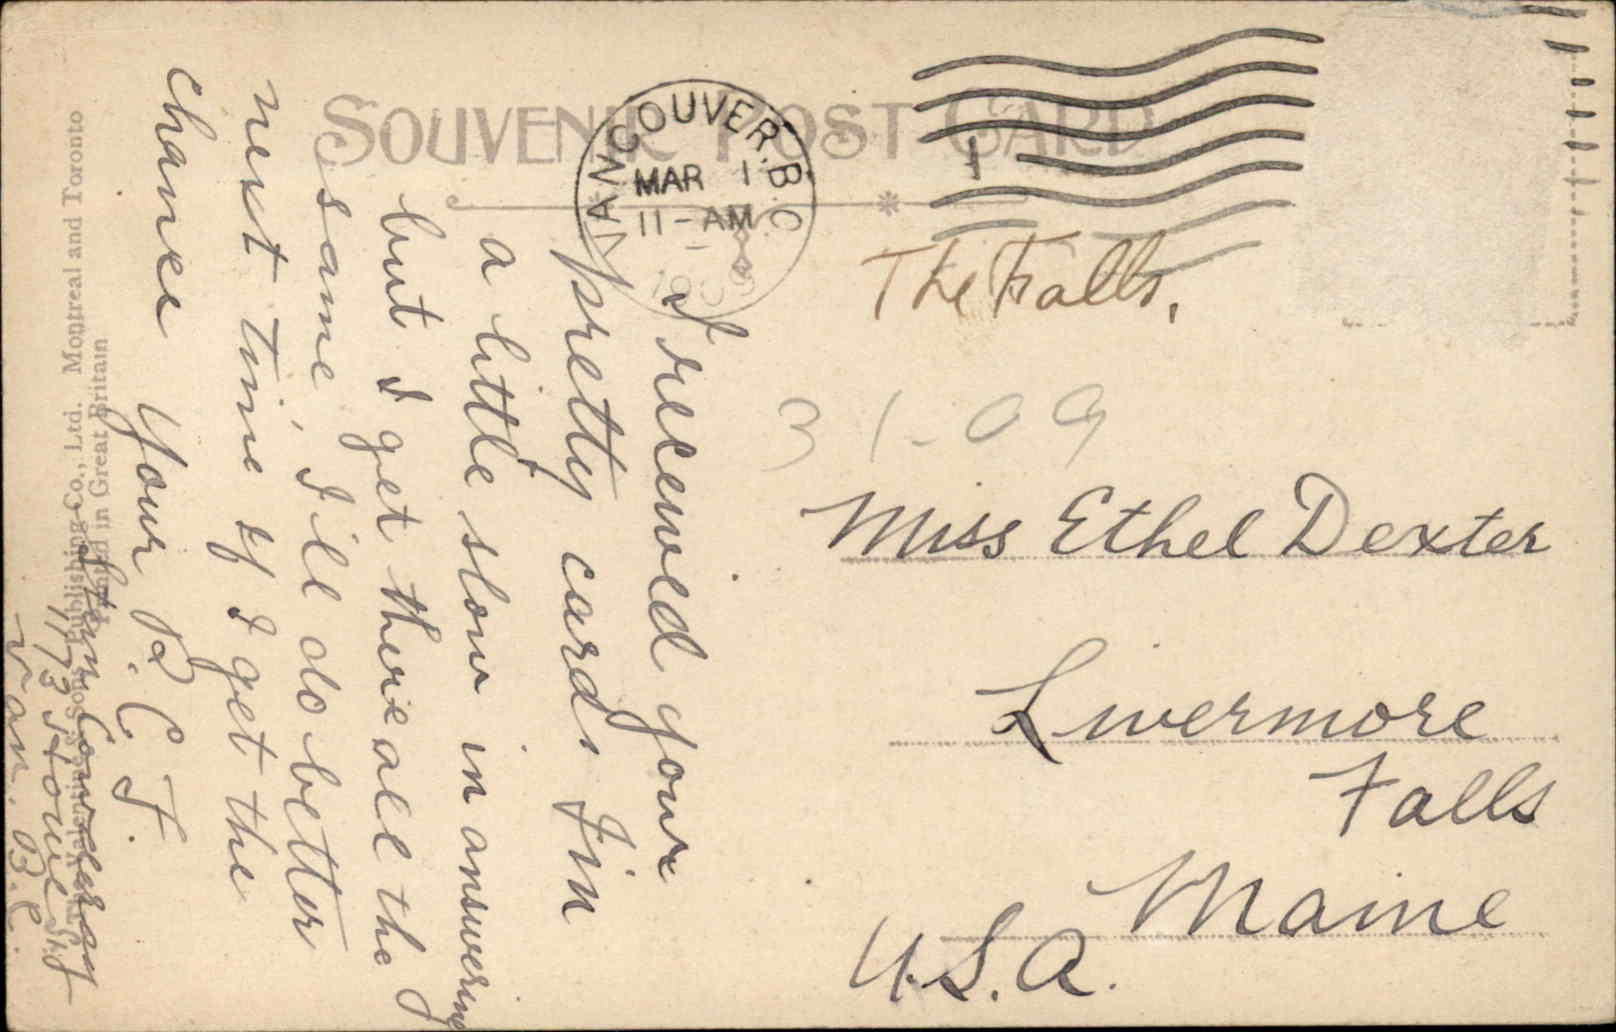 SOUVENIR POST CARD
VANCOUVER, B.C.
MAR 1
11-AM
1
The Falls.
31-09
Miss Ethel Dexter
Livermore
Falls
Maine
U.S.A.
I received your
pretty card, I'm
a little slow in answering
but I get there all the
same, I'll do better
next time if I get the
chance Your P. C. F.
1173 Howe St.
Van. B.C.
The Valentine & Sons Publishing Co., Ltd. Montreal and Toronto
Printed in Great Britain